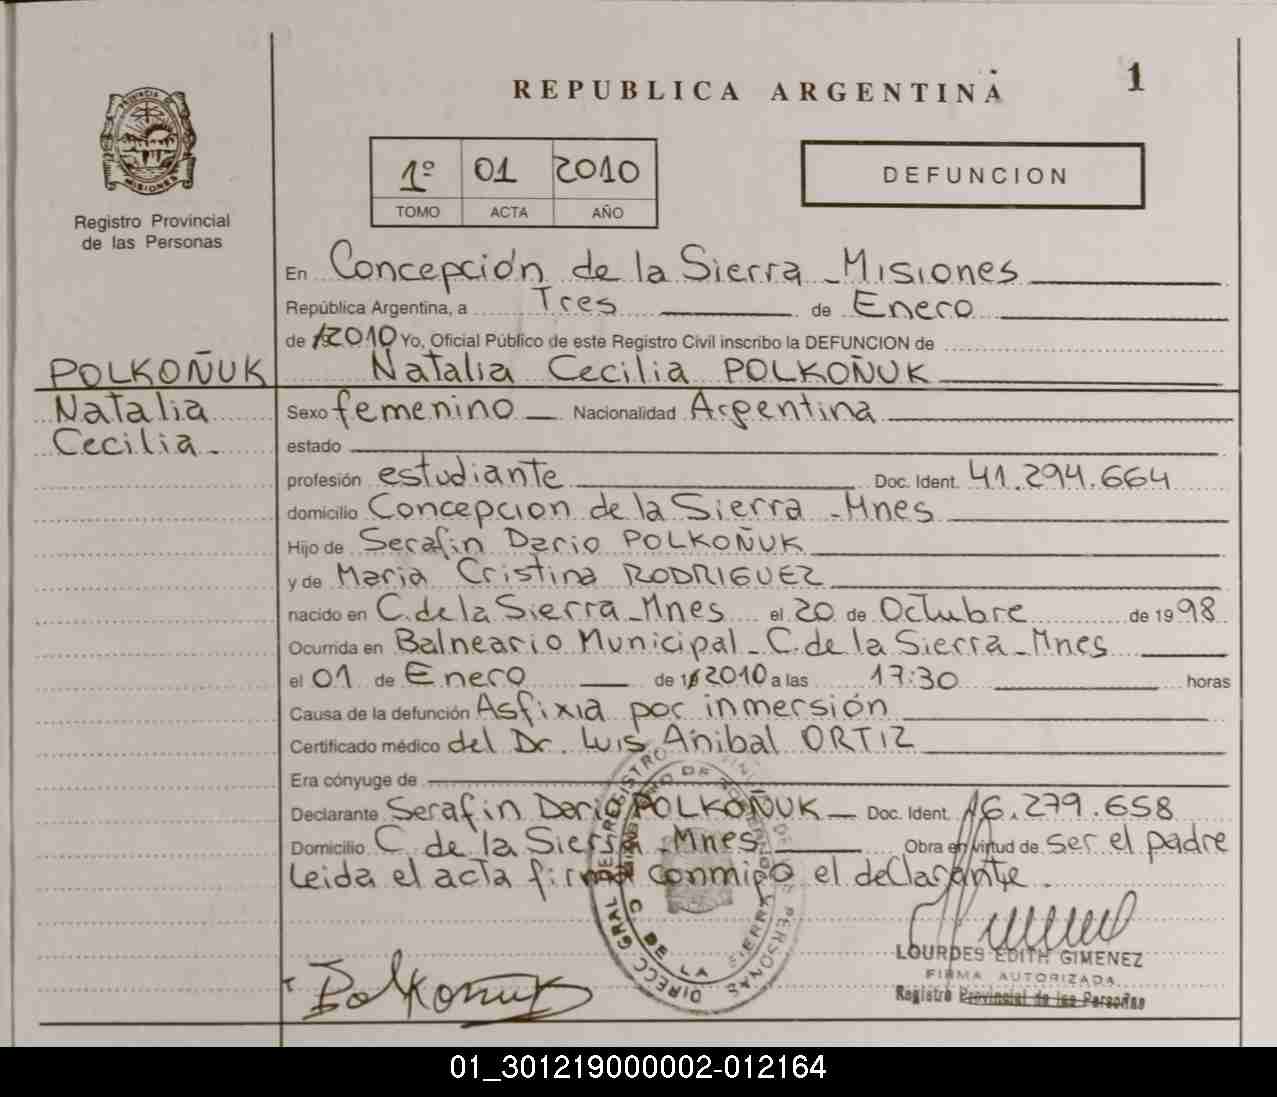 REPUBLICA ARGENTINA
1
1º 01 2010
TOMO ACTA AÑO
DEFUNCION
PROVINCIA DE
MISIONES
Registro Provincial
de las Personas
En Concepción de la Sierra - Misiones
República Argentina, a Tres de Enero
de 2010 Yo, Oficial Público de este Registro Civil inscribo la DEFUNCION de
POLKOÑUK
Natalia
Cecilia -
Natalia Cecilia POLKOÑUK
Sexo femenino Nacionalidad Argentina
estado
profesión estudiante Doc. Ident. 41.294.664
domicilio Concepcion de la Sierra - Mnes
Hijo de Serafin Dario POLKOÑUK
y de Maria Cristina RODRIGUEZ
nacido en C. de la Sierra - Mnes el 20 de Octubre de 1998
Ocurrida en Balneario Municipal - C. de la Sierra - Mnes
el 01 de Enero de 2010 a las 17:30 horas
Causa de la defunción Asfixia por inmersión
Certificado médico del Dr. Luis Anibal ORTIZ
Era cónyuge de
Declarante Serafin Dario POLKOÑUK Doc. Ident. 16.279.658
Domicilio C. de la Sierra - Mnes Obra en virtud de ser el padre
Leida el acta firma conmigo el declarante.
Polkoñuk
LOURDES EDITH GIMENEZ
FIRMA AUTORIZADA
Registro Provincial de las Personas
01_301219000002-012164